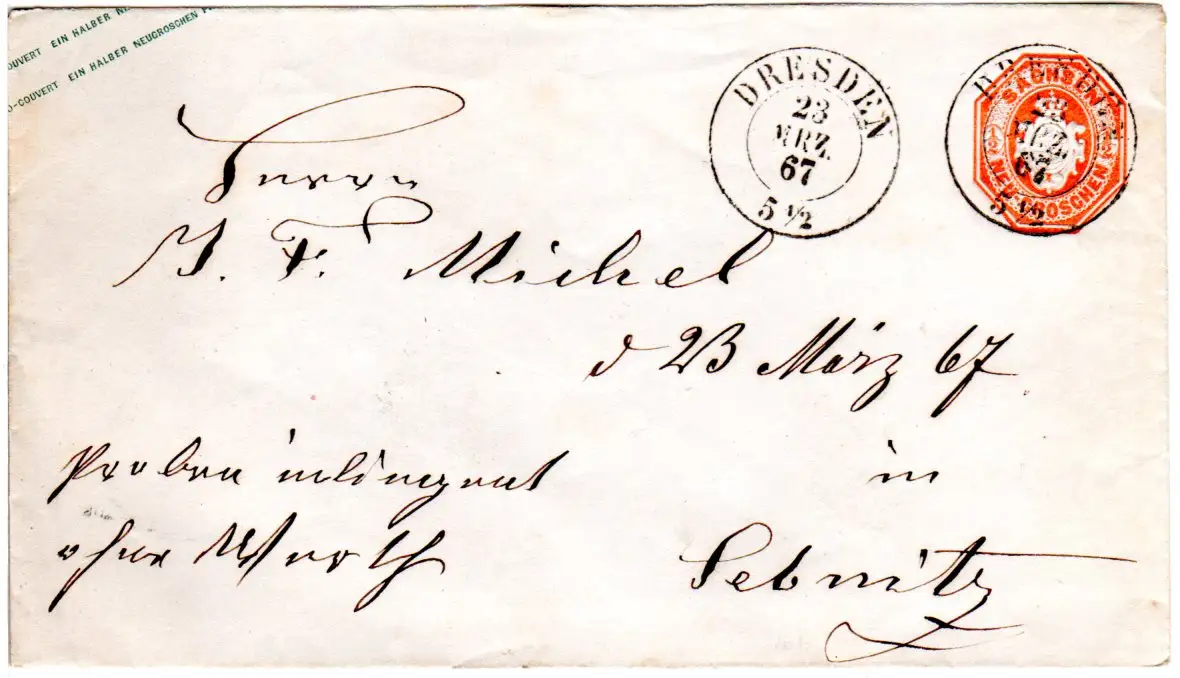 OUVERT EIN HALBER NE
O-COUVERT EIN HALBER NEUGROSCHEN
DRESDEN
23
MRZ.
67
5 1/2
DRESDEN
SACHSEN
23
MRZ.
67
NEUGROSCHEN
5 1/2
Herrn
J. F. Michel
d 23 März 67
Proben inliegent
in
ohne Werth
Sebnitz